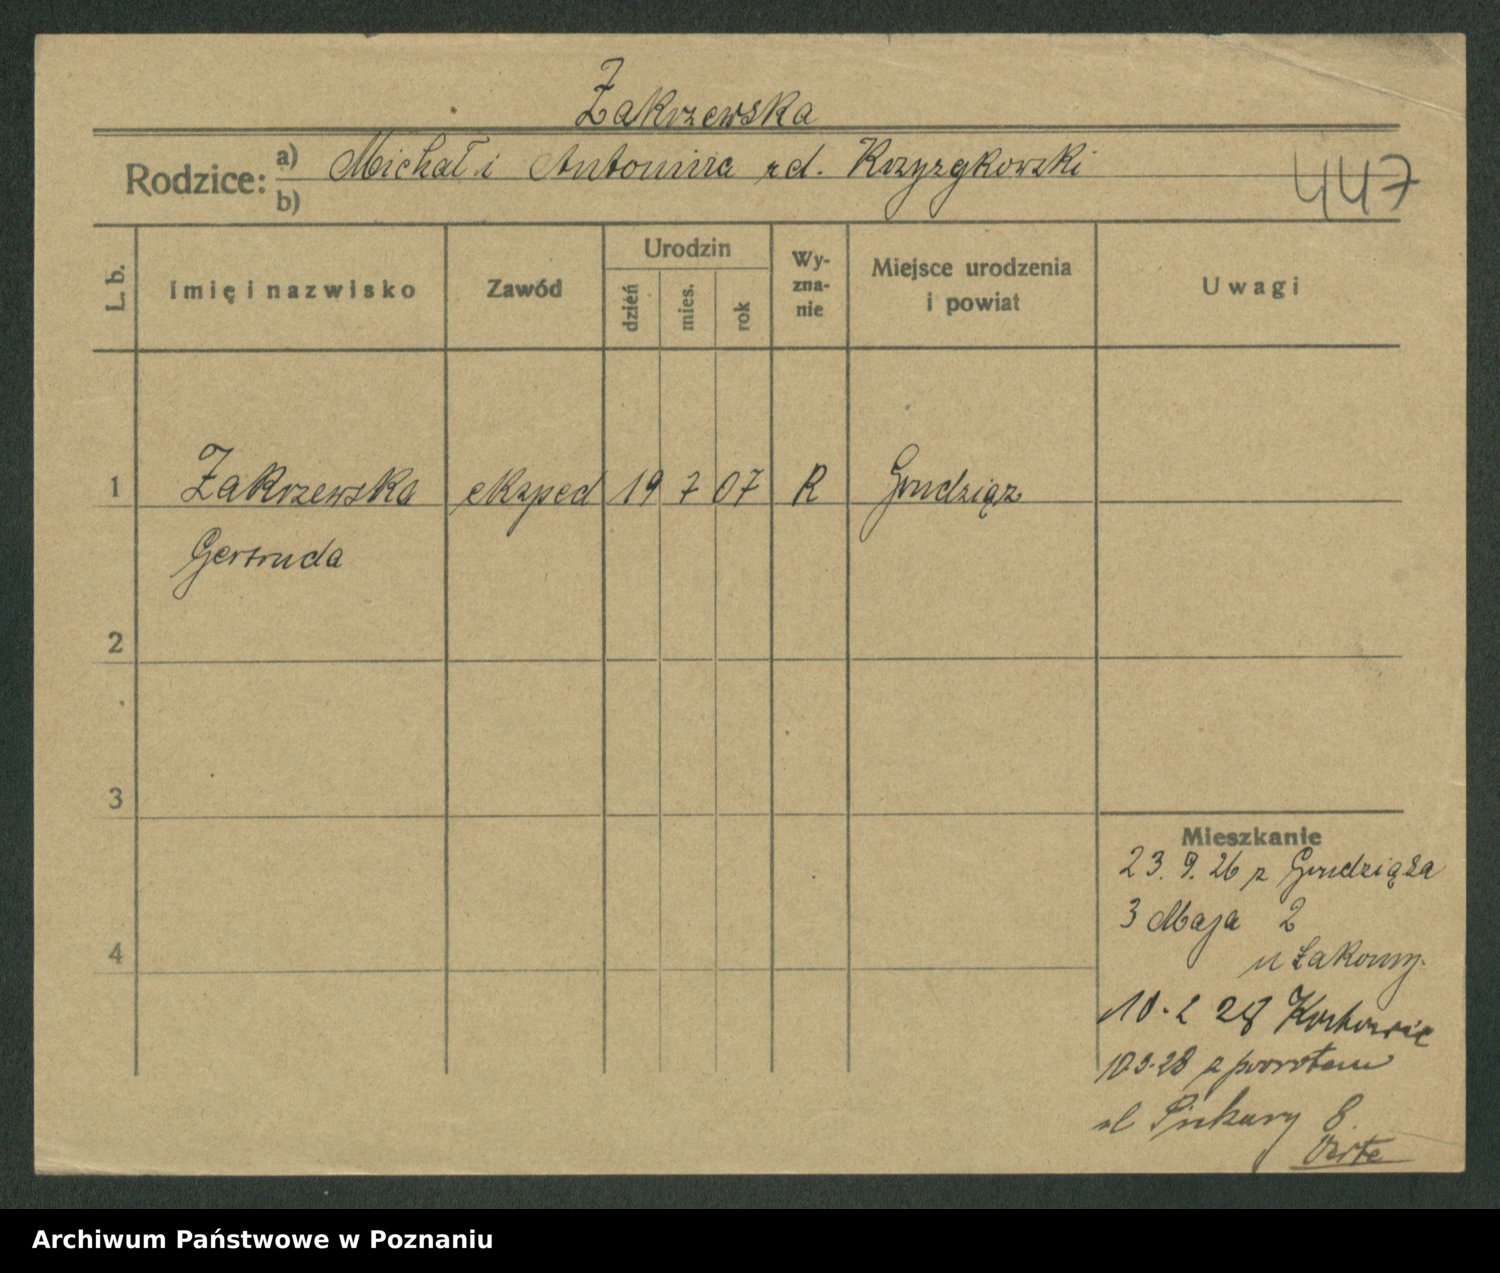 Zakrzewska
Rodzice: a) Michał i Antonina zd. Krzyżykowski
b)
447
L. b.
Imię i nazwisko
Zawód
Urodzin
dzień
mies.
rok
Wy-
zna-
nie
Miejsce urodzenia
i powiat
Uwagi
1 Zakrzewska eksped 19 7 07 R Grudziąz
Gertruda
2
3
4
Mieszkanie
23. 9. 26 z Grudziąża
3 Maja 2
u
10. 2 28
10 3. 28 z powrotem
ul Piekary 8
Archiwum Państwowe w Poznaniu